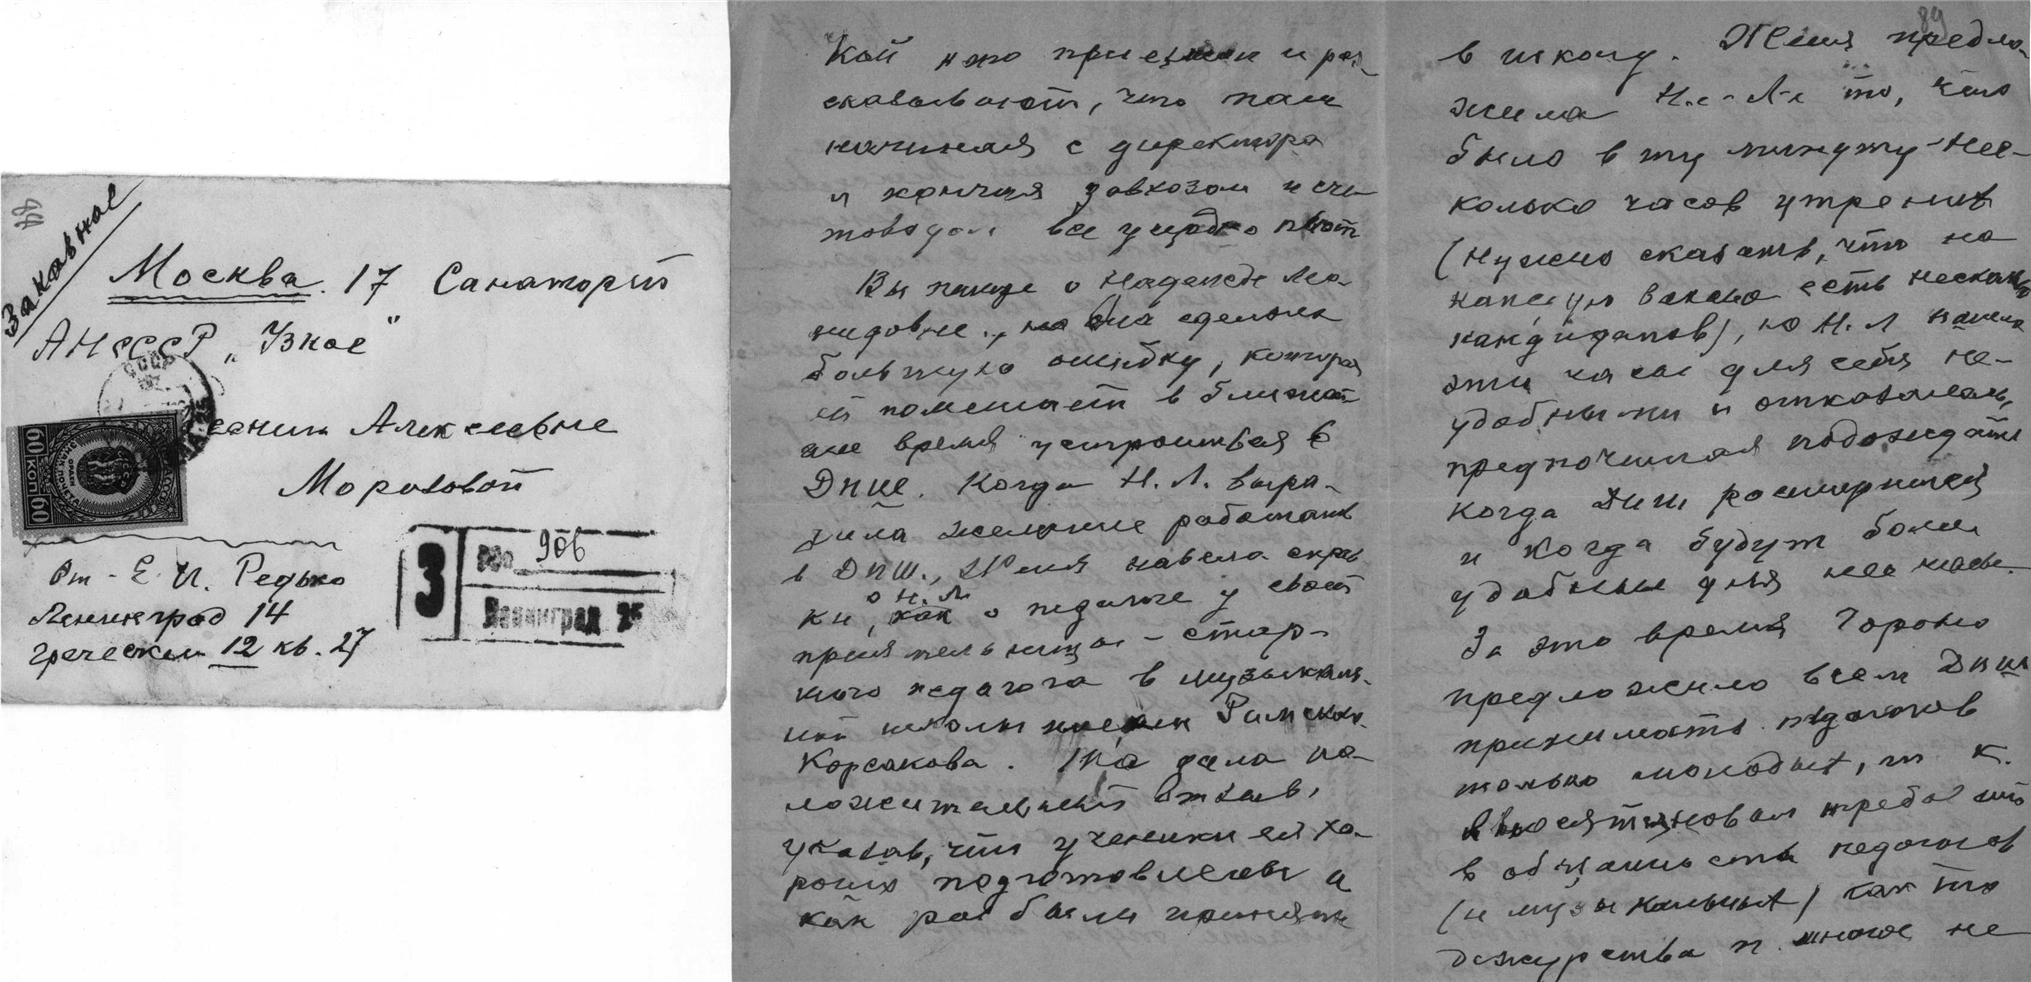 Заказное
Москва. 17 Санаторий
АН СССР „Узкое"
СССР
Ксении Алексеевне
Морозовой
60 КОП 60
ЗНАК ПОЧЕТА
От - Е. И. Редько
Ленинград 14
Греческий 12 кв. 27
З
№ 906
Ленинград 25
кой кто приезжал и рас-
сказывают, что там
начиная с директора
и кончая завхозом и сче-
товодом все усердно пьют
Вы пишете о Надежде Лео-
нидовне., но она сделала
большую ошибку, которая
ей помешает в ближай-
шее время устроиться в
ДПШ. Когда Н. Л. выра-
зила желание работать
в ДПШ., Женя навела справ
о Н. Л.
ки, как о педагоге у своей
приятельницы - стар-
шего педагога в музыкаль-
ной школы имени Римского
Корсакова. Та дала по-
ложительный отзыв,
указав, что ученики её хо-
рошо подготовлены и
как раз были приняты
89
в школу. Женя предло-
жила Н-е Л-е то, что
было в ту минуту - нес-
колько часов утренних
(нужно сказать, что на
каждую вакансию есть несколько
кандидатов), но Н. Л нашла
эти часы для себя не-
удобными и отказалась,
предпочитая подождать
когда ДПШ расширится
и когда будут более
удобные для нее часы.
За это время Гороно
предложило всем ДПШ
принимать педагогов
только молодых, т. к.
в обязанность педагогов
(и музыкальных) как то
дежурства и многое не